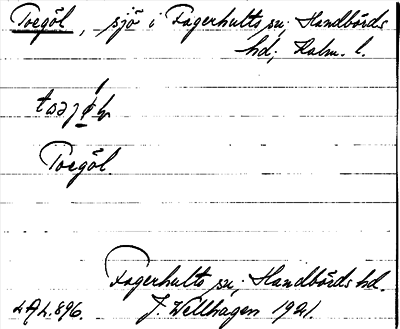 Toegöl, sjö i Fagerhults sn; Handbörds
hd; Kalm. l.
Toegöl.
Fagerhults sn; Handbörds hd.
LAL. 896. J. Wellhagen 1941.